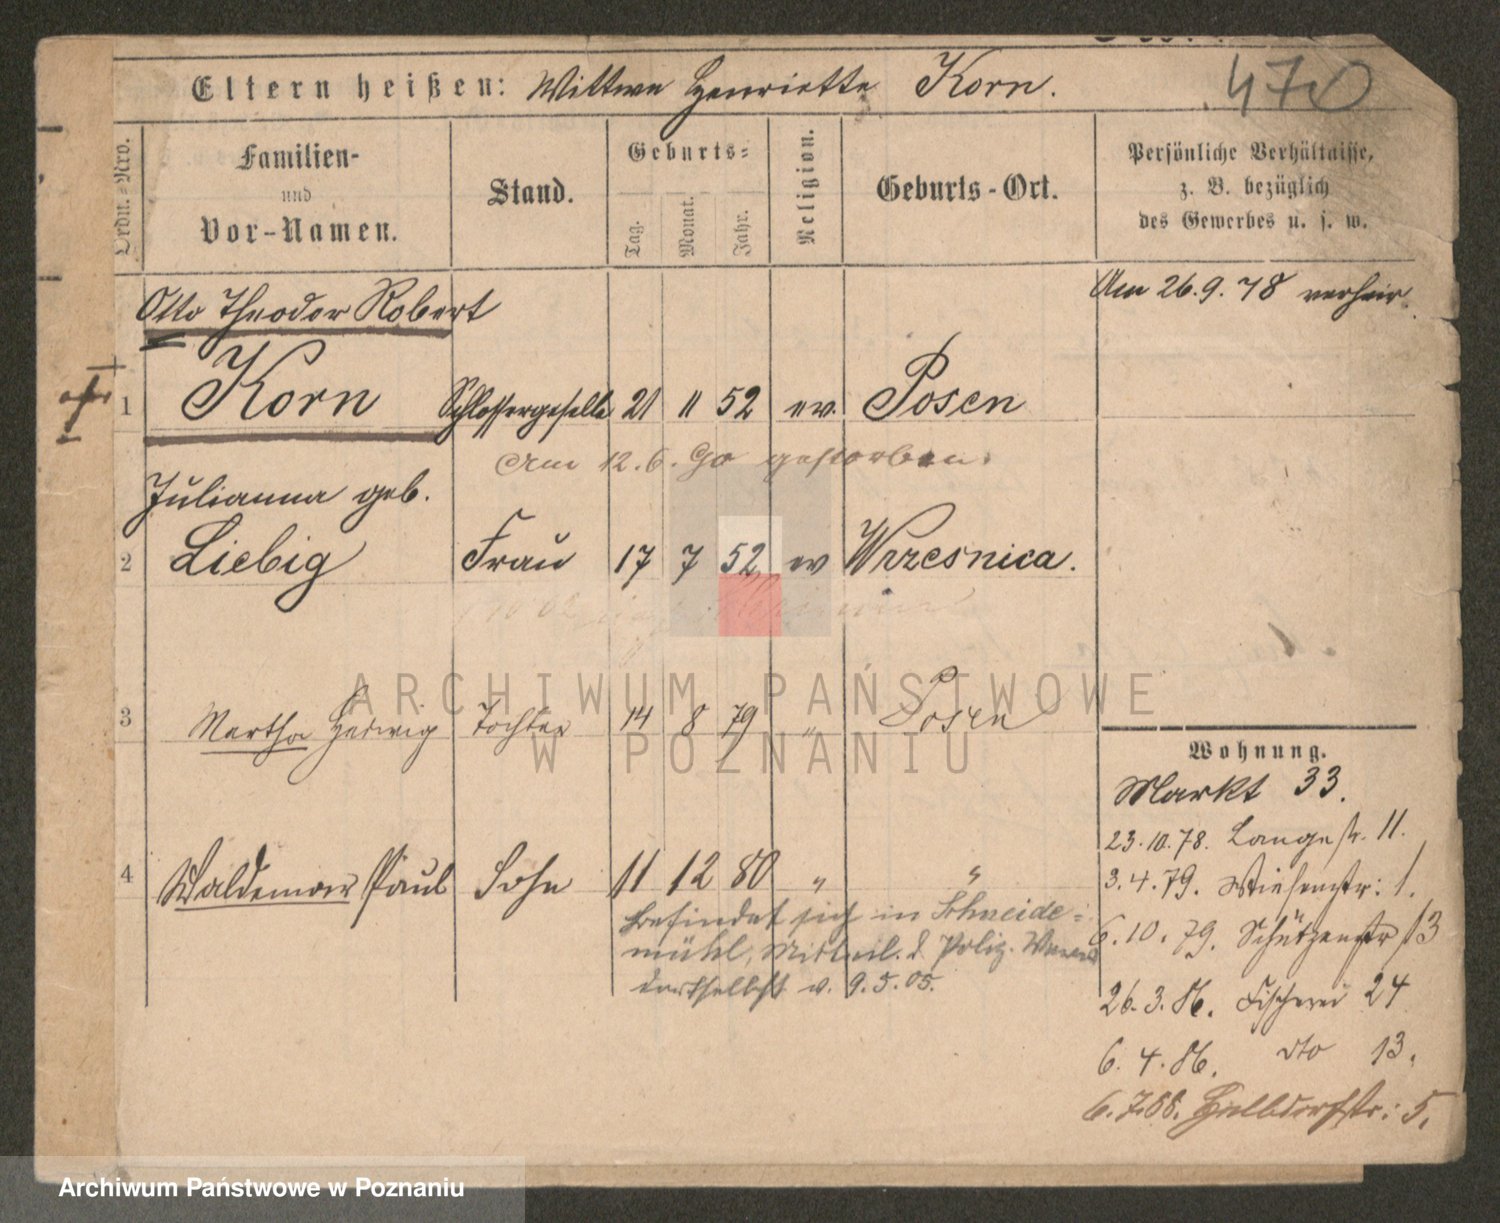 470
Eltern heißen: Wittwe Henriette Korn.
Ordn.-Nro.
Familien-
und
Vor-Namen.
Stand.
Geburts-
Tag.
Monat.
Jahr.
Religion.
Geburts-Ort.
Persönliche Verhältnisse,
z. B. bezüglich
des Gewerbes u. s. w.
Am 26.9.78 verheir.
Otto Theodor Robert
1 Korn Schlossergeselle 21 11 52 ev. Posen
Am 12.6.90 gestorben.
Julianna geb.
2 Liebig Frau 17 7 52 ev Wrzesnica.
3 Martha Hedwig Tochter 14 8 79 " Posen
4 Waldemar Paul Sohn 11 12 80 " "
befindet sich in Schneide-
mühl, Mitteil. d. Poliz.
daselbst v. 9.5.05.
Wohnung.
Markt 33.
23.10.78. Langestr. 11.
3.4.79. Wiesenstr: 1.
6.10.79. Schützenstr 13
26.3.86. Fischerei 24
6.4.86. dto 13.
6.7.88. Halbdorfstr: 5.
ARCHIWUM PAŃSTWOWE
W POZNANIU
Archiwum Państwowe w Poznaniu